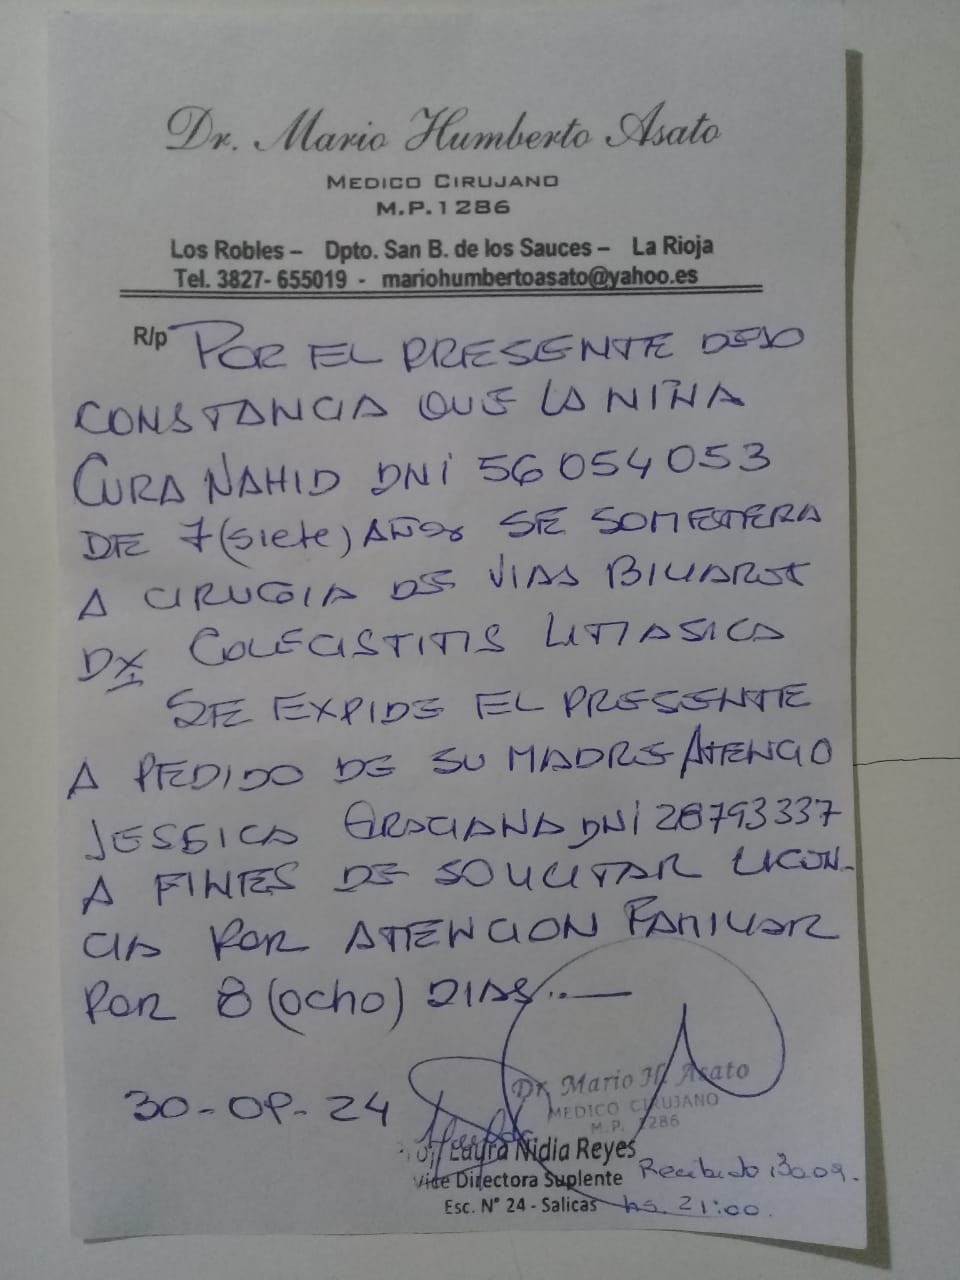 Dr. Mario Humberto Asato
MEDICO CIRUJANO
M.P.1286
Los Robles – Dpto. San B. de los Sauces – La Rioja
Tel. 3827- 655019 - mariohumbertoasato@yahoo.es
R/p POR EL PRESENTE DEJO
CONSTANCIA QUE LA NIÑA
CURA NAHID DNI 56054053
DE 7 (siete) AÑOS SE SOMETERA
A CIRUGIA DE VIAS BILIARES
DX COLECISTITIS LITIASICA
SE EXPIDE EL PRESENTE
A PEDIDO DE SU MADRE ATENCIO
JESSICA GRACIANA DNI 28793337
A FINES DE SOLICITAR LICEN-
CIA POR ATENCION FAMILIAR
POR 8 (ocho) DIAS..—
30-09-24
Dr. Mario H. Asato
MEDICO CIRUJANO
M.P. 1286
Laura Nidia Reyes
Vice Directora Suplente
Esc. N° 24 - Salicas
Recibido 30.09.
hs. 21:00.